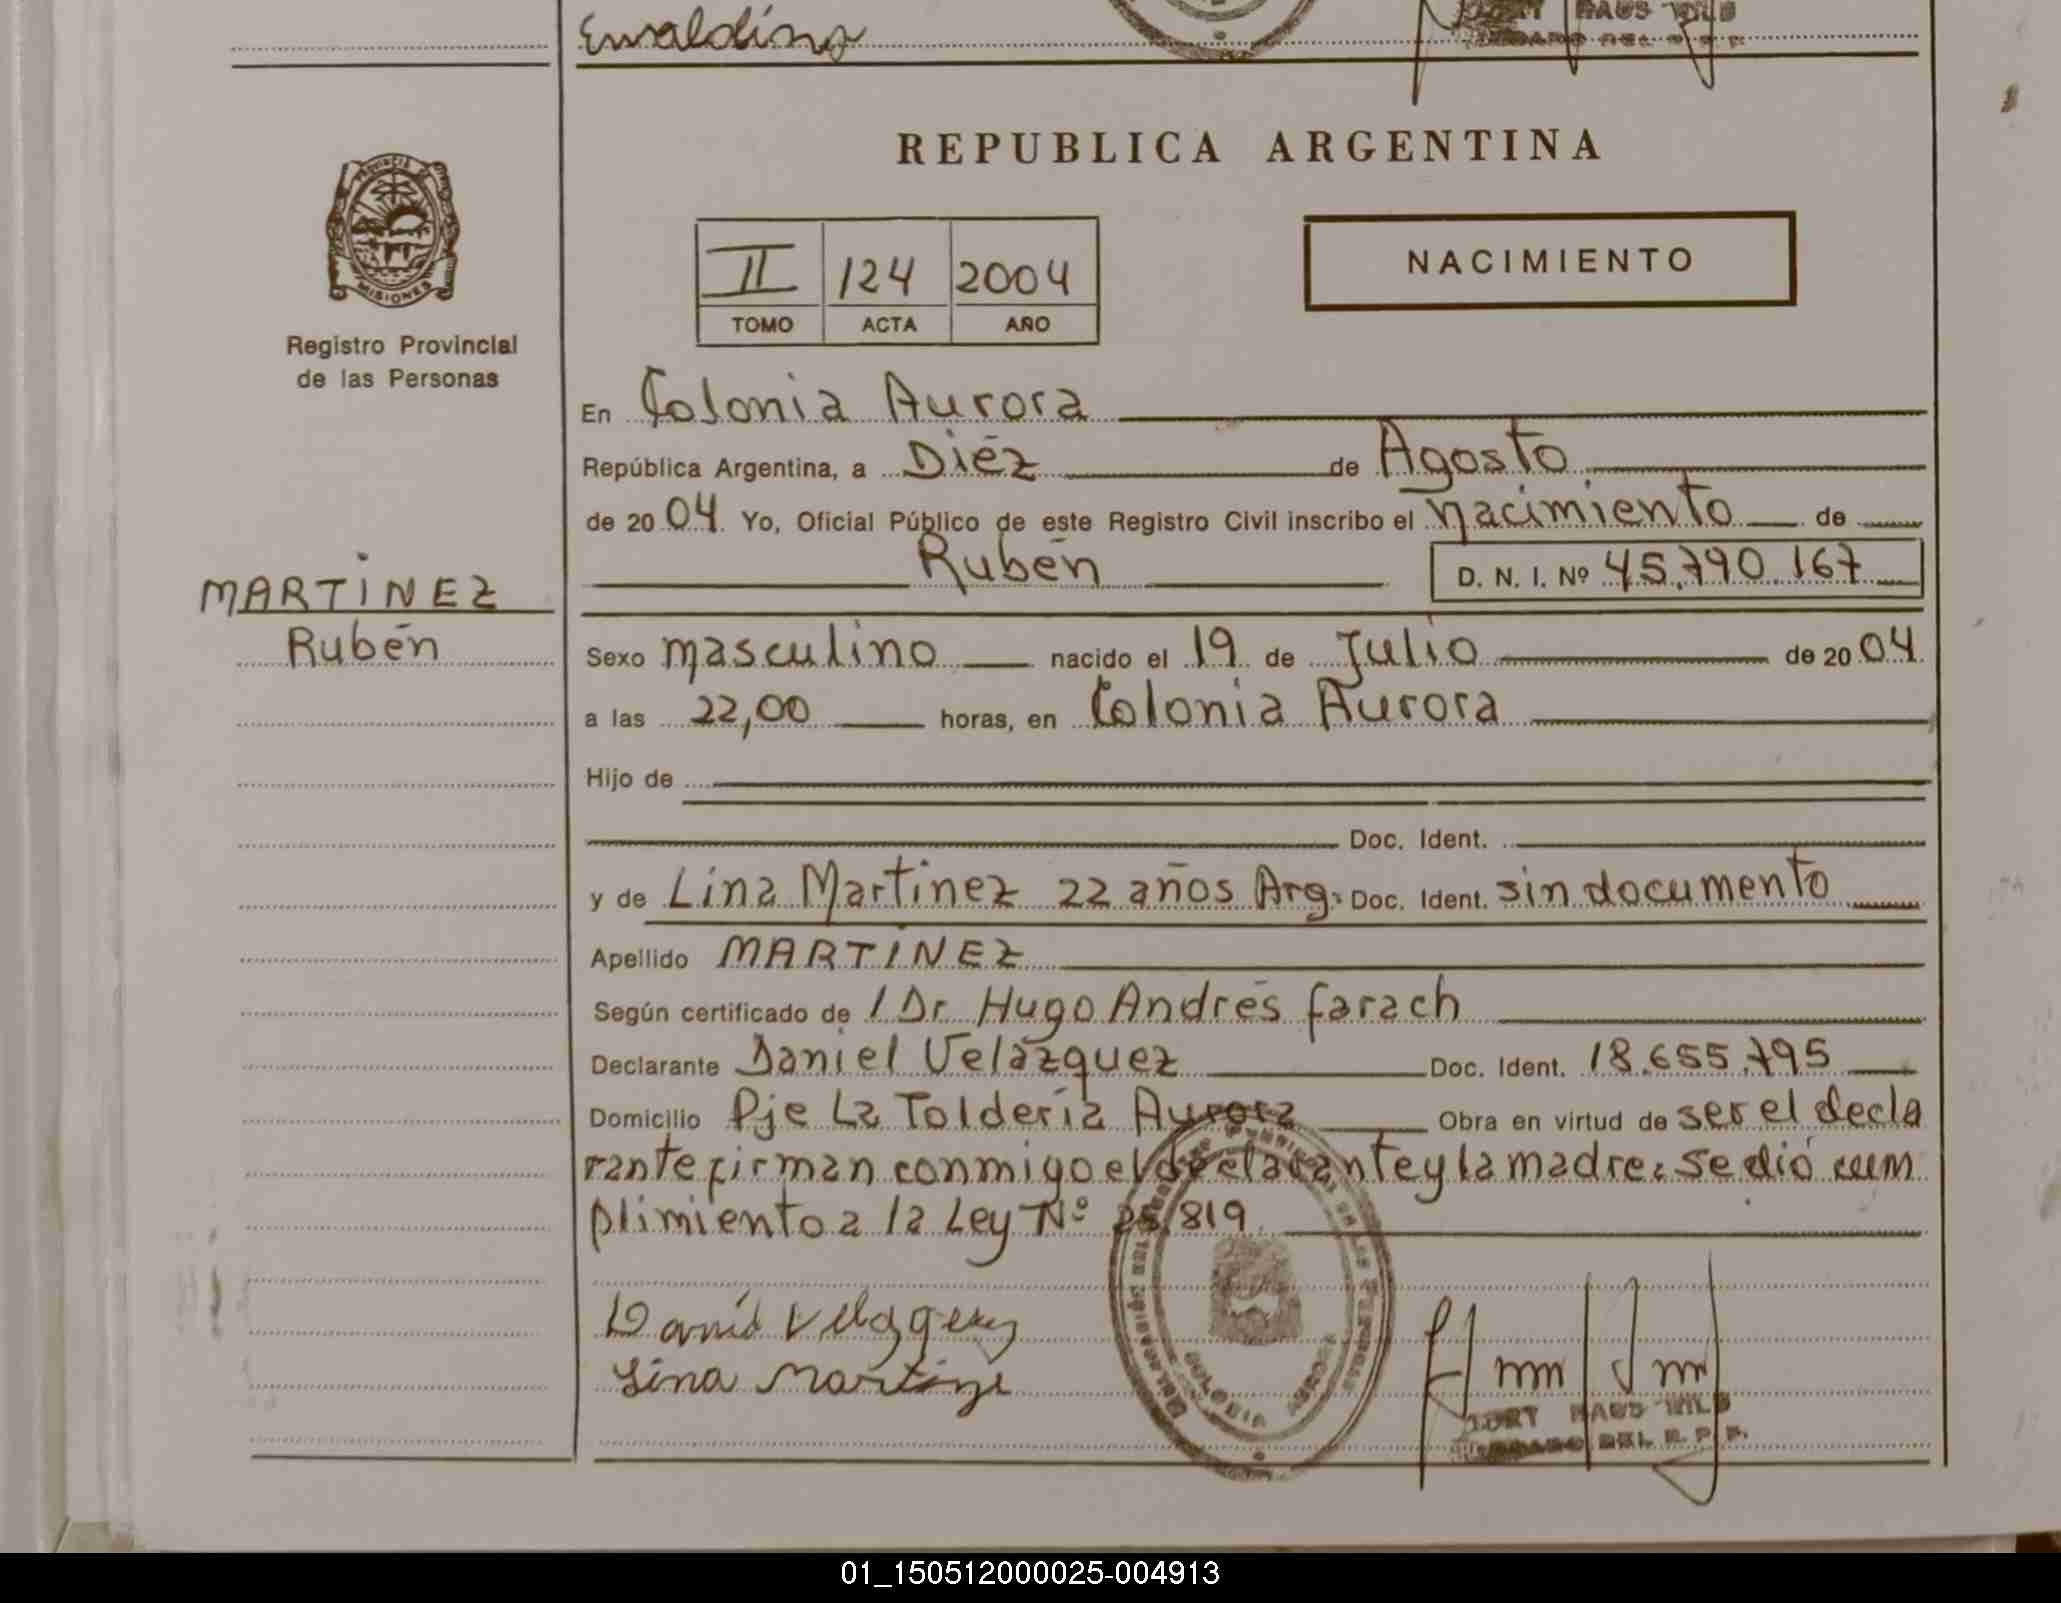 Ewaldino
REPUBLICA ARGENTINA
PROVINCIA DE MISIONES
Registro Provincial
de las Personas
II 124 2004
TOMO ACTA AÑO
NACIMIENTO
En Colonia Aurora
República Argentina, a Diéz de Agosto
de 2004. Yo, Oficial Público de este Registro Civil inscribo el nacimiento de
Rubén D. N. I. Nº 45.790.167
MARTINEZ
Rubén
Sexo masculino nacido el 19 de Julio de 2004.
a las 22,00 horas, en Colonia Aurora
Hijo de
Doc. Ident.
y de Lina Martinez 22 años Arg. Doc. Ident. sin documento
Apellido MARTINEZ
Según certificado de / Dr. Hugo Andrés Farach
Declarante Daniel Velázquez Doc. Ident. 18.655.795
Domicilio Pje La Tolderia Aurora Obra en virtud de ser el decla
rante firman conmigo el declarante y la madre. Se dió cum
plimiento a la Ley Nº 25.819.
Lina Martinez
COLONIA AURORA
DEL R. P. P.
01_150512000025-004913